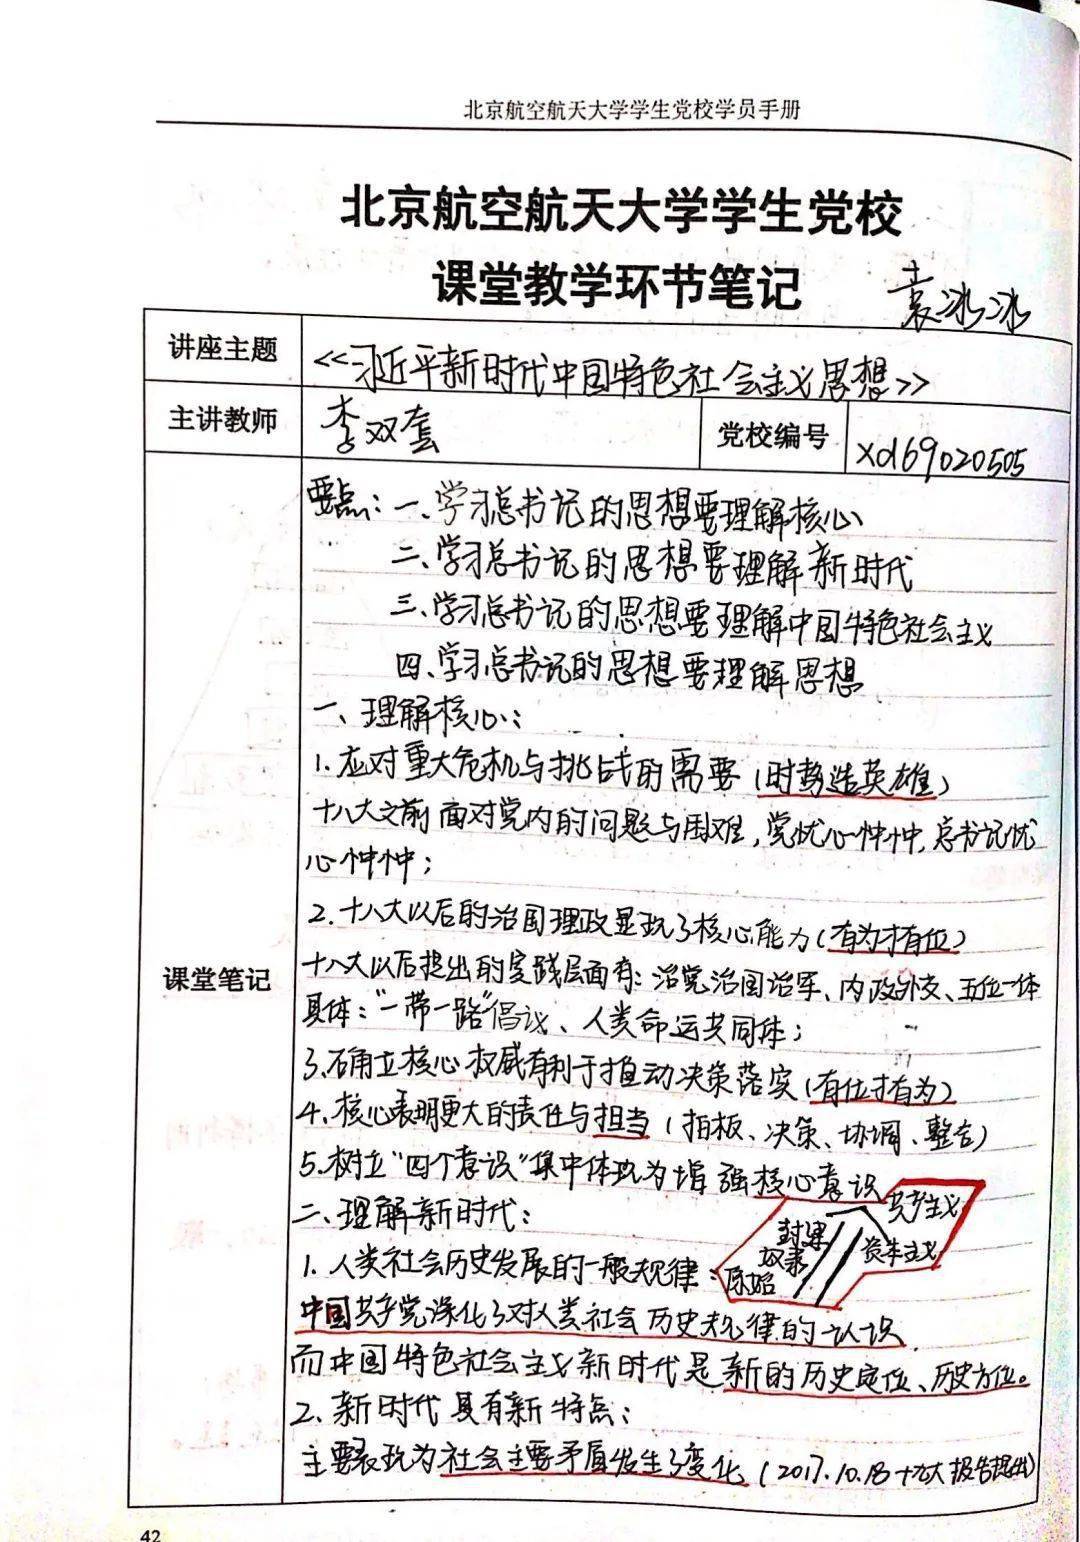 北京航空航天大学学生党校学员手册
北京航空航天大学学生党校
课堂教学环节笔记
袁冰冰
讲座主题
<<习近平新时代中国特色社会主义思想>>
主讲教师
李双套
党校编号
xd169020505
课堂笔记
要点:一、学习总书记的思想要理解核心
二、学习总书记的思想要理解新时代
三、学习总书记的思想要理解中国特色社会主义
四、学习总书记的思想要理解思想
一、理解核心:
1.应对重大危机与挑战的需要(时势造英雄)
十八大之前面对党内的问题与困难,党忧心忡忡,总书记忧
心忡忡;
2.十八大以后的治国理政显现了核心能力(有为才有位)
十八大以后提出的实践层面有:治党治国治军、内政外交、五位一体
具体:“一带一路”倡议、人类命运共同体;
3.确立核心权威有利于推动决策落实(有位才有为)
4.核心表明更大的责任与担当(拍板、决策、协调、整合)
5.树立“四个意识”集中体现为增强核心意识
二、理解新时代:
1.人类社会历史发展的一般规律:
原始
奴隶
封建
资本主义
共产主义
中国共产党深化了对人类社会历史规律的认识
而中国特色社会主义新时代是新的历史定位、历史方位。
2.新时代具有新特点:
主要表现为社会主要矛盾发生了变化(2017.10.18十九大报告提出)
42